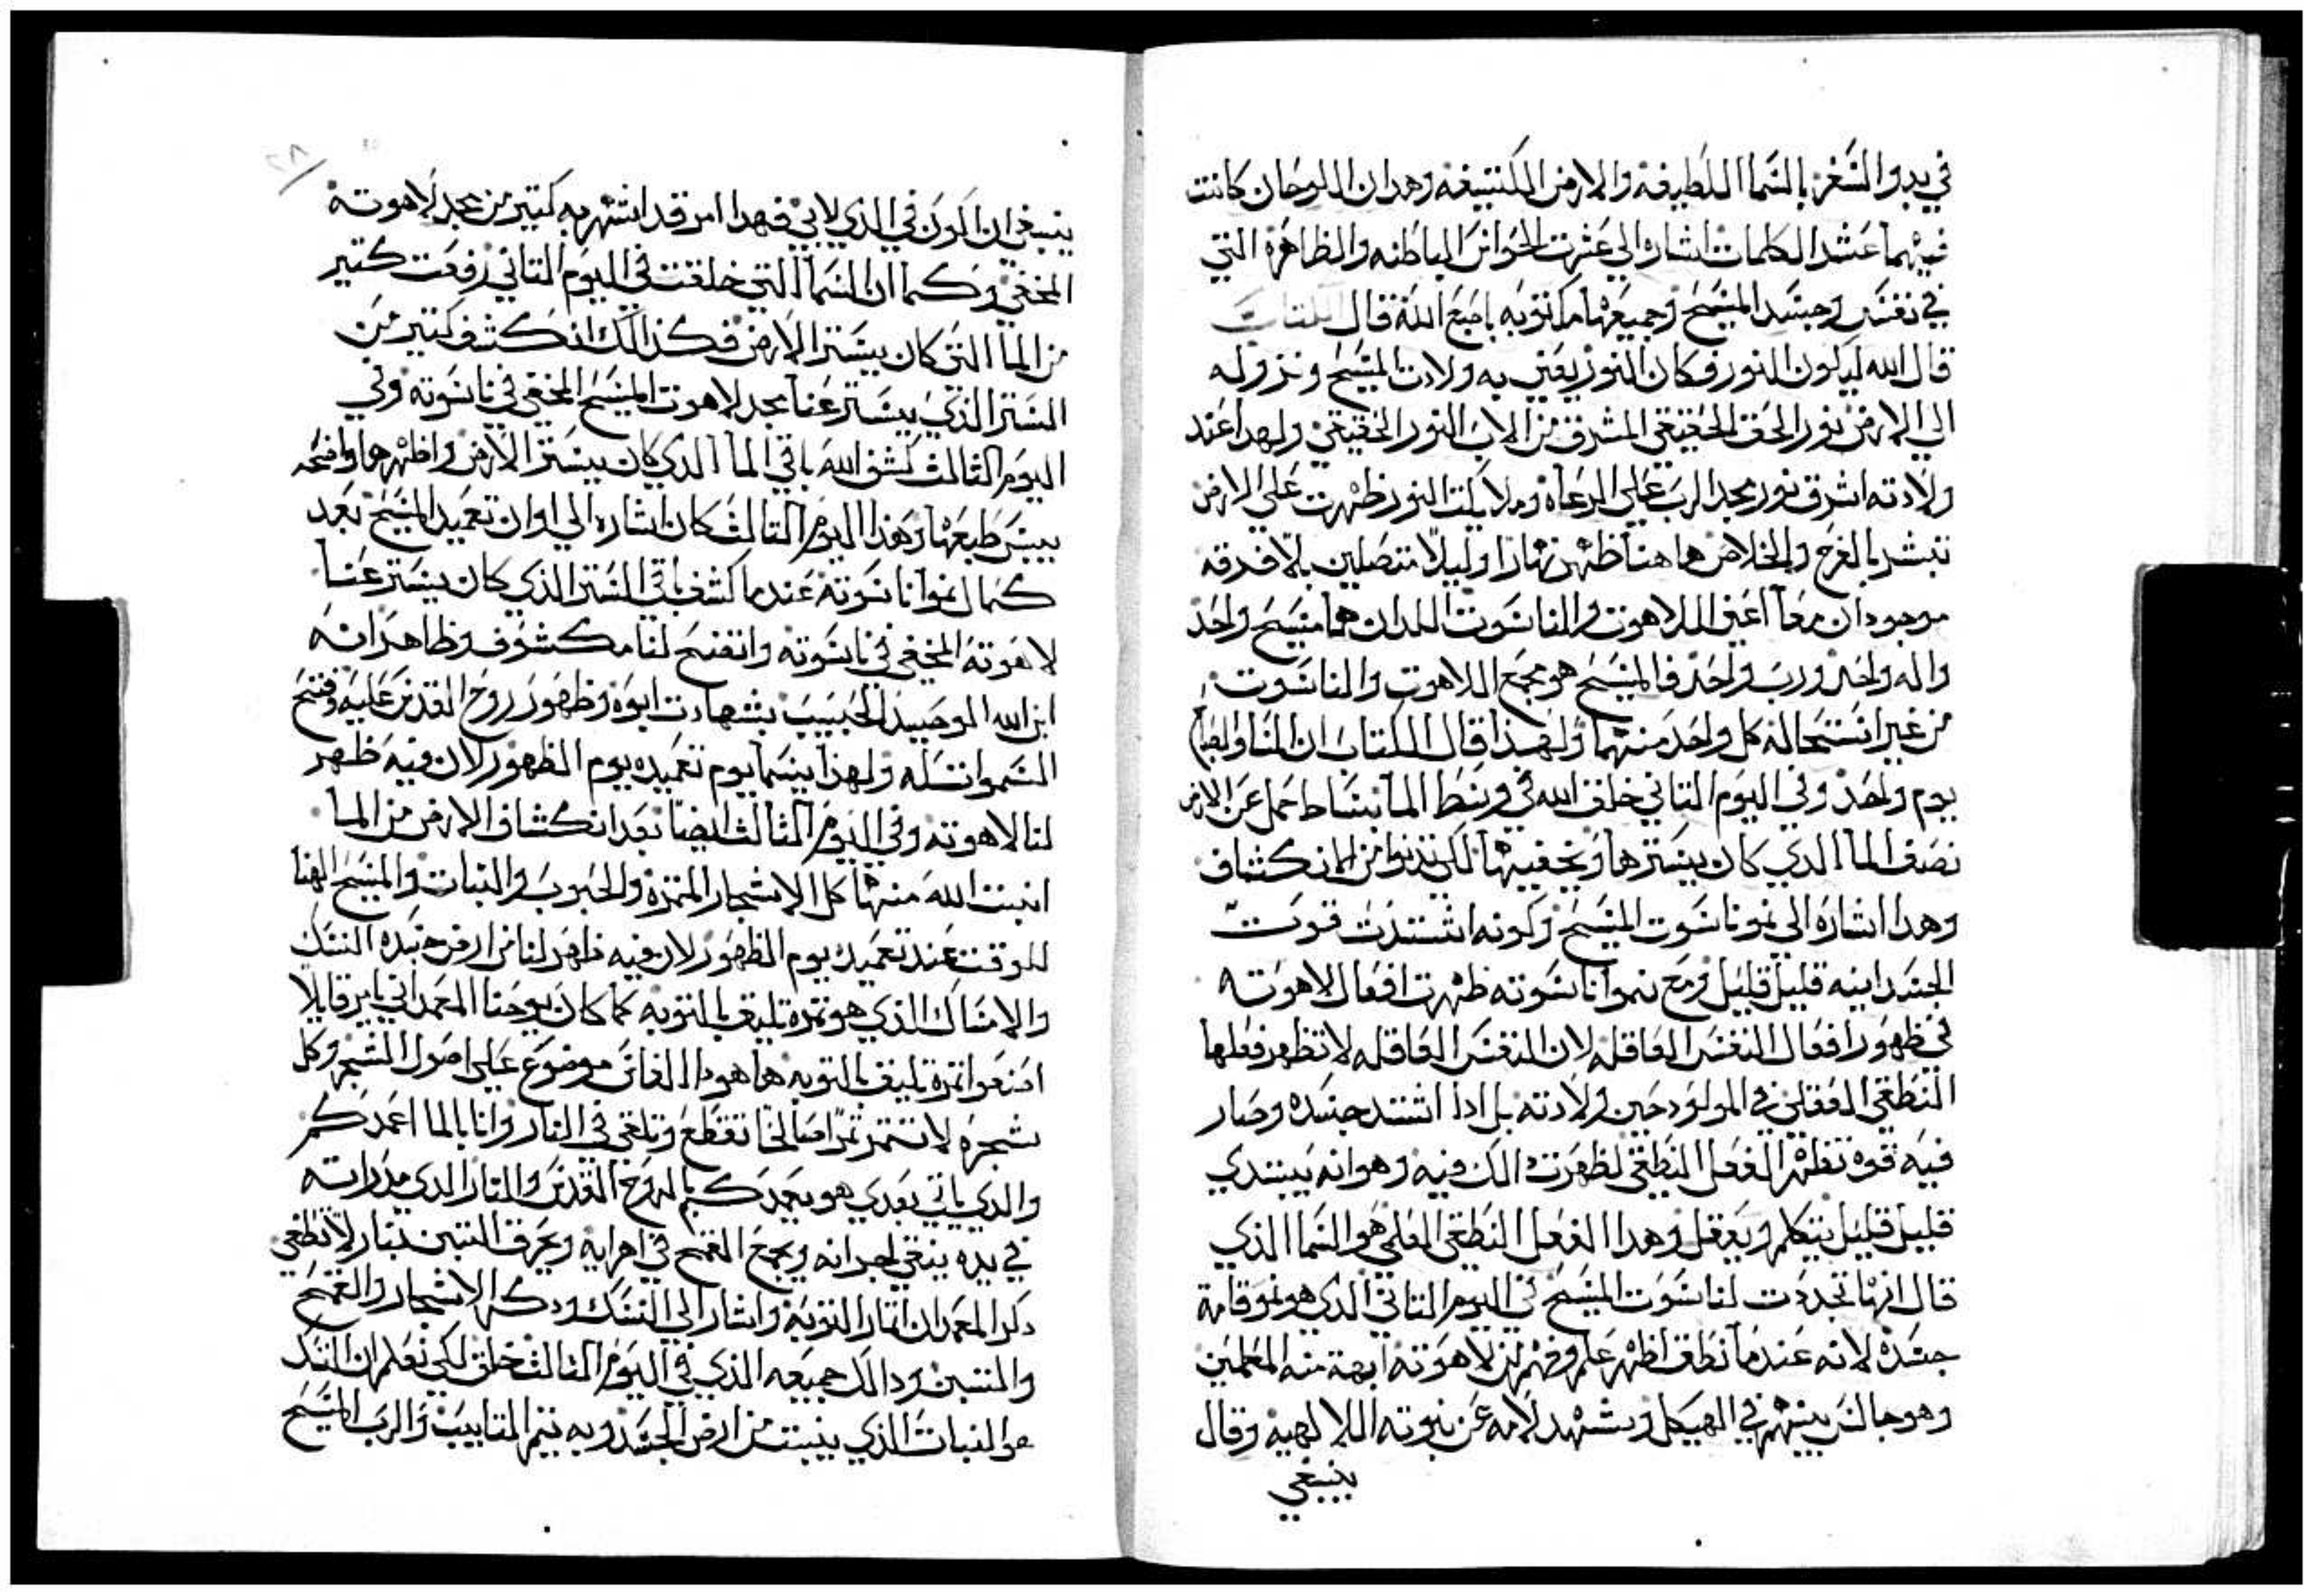 في بدو السفر بالسما اللطيفه والارض الكتيفه وهدان اللوحان كانت
فيهما عشر الكلمات اشاره الي عشرت الحواس الباطنه والظاهره التي
في نفس وجسد المسيح وجميعها مكتوبه باصبع الله قال الكتاب
قال الله ليكون النور فكان النور يعني به ولادت المسيح ونزوله
الي الارض نور الحق الحقيقي المشرق من الاب النور الحقيقي ولهدا عند
ولادته اشرق نور مجد الرب علي الرعاه وملايكت النور ظهرت علي الارض
تبشر بالفرح والخلاص هاهنا ظهر نهارا وليلا متصلين بلا فرقه
موجودان معا اعني اللاهوت والناسوت اللدان هما مسيح واحد
واله واحد ورب واحد فالمسيح هو مجمع اللاهوت والناسوت
من غير استحاله كل واحد منهما ولهذا قال الكتاب ان المسا والصباح
يوم واحد وفي اليوم التاني خلق الله في وسط الما بساط حمل عن الارض
نصف الما الدي كان يسترها ويخفيها لكي تدنوا من الانكشاف
وهدا اشاره الي نمو ناسوت المسيح وكونه اشتدت قوت
الجسدانيه قليل قليل ومع نموا ناسوته ظهرت افعال لاهوته
في ظهور افعال النفس العاقله لان النفس العاقله لا تظهر فعلها
النطقي العقلي في المولود حين ولادته بل ادا اشتد جسده وصار
فيه قوه تظهر الفعل النطقي لظهرت دالك فيه وهو انه يبتدي
قليل قليل يتكلم ويعقل وهدا الفعل النطقي العلمي هو السما الذي
قال انها تجددت لناسوت المسيح في اليوم التاني الذي هو نمو قامة
جسده لانه عندما نطق اظهر علم وفهم لاهوته ابهة منه المعلمين
وهو جالس بينهم في الهيكل ويشهد لامه عن بنوته اللالهيه وقال
ينبغي
ينبغي ان اكون في الذي لابي فهدا امر قد اشتهر به كتير من مجد لاهوته
المخفي وكما ان السما التي خلقت في اليوم التاني رفعت كتير
من الما التي كان يستر الارض فكذالك انكشف كتير من
الستر الذي يستر عنا مجد لاهوت المسيح المخفي في ناسوته وفي
اليوم الثالث كشف الله باقي الما الدي كان يستر الارض واظهرها واضحه
يبس طبعها وهذا اليوم التالث كان اشاره الي اوان تعميد المسيح بعد
كمال نموا ناسوته عندما كشف باقي الستر الذي كان يستر عنا
لاهوته المخفي في ناسوته واتضح لنا مكشوف وظاهر انه
ابن الله الوحيد الحبيب بشهادت ابوه وظهور روح القدس عليه وفتح
السموات له ولهذا يسما يوم تعميده يوم الظهور لان فيه ظهر
لنا لاهوته وفي اليوم الثالث ايضا بعد انكشاف الارض من الما
انبت الله منها كل الاشجار المتمره والحبوب والنبات والمسيح الهنا
للوقت عند تعميده يوم الظهور لان فيه ظهر لنا من ارض جسده النسك
والامساك الذي هو تمره تليق بالتوبه كما كان يوحنا المعمداني يامر قايلا
اصنعوا تمرة تليق بالتوبه هاهودا الفاس موضوع علي اصول الشجر وكل
شجره لا تتمر تمرا صالحا تقطع وتلقي في النار وانا بالما اعمدكم
والدي ياتي بعدي هو يعمدكم بالروح القدس والنار الدي مدراته
في يده ينقي اجرانه ويجمع القمح في اهرايه ويحرق التبن بنار لا تطفي
دكر المعمدان اتمار التوبة واشار الي النسك ودكر الاشجار والقمح
والتبن ودالك جميعه الذي في اليوم الثالث خلق لكي نعلم ان النسك
هو النبات الذي ينبت من ارض الجسد وبه تتم المتاييب والرب المسيح